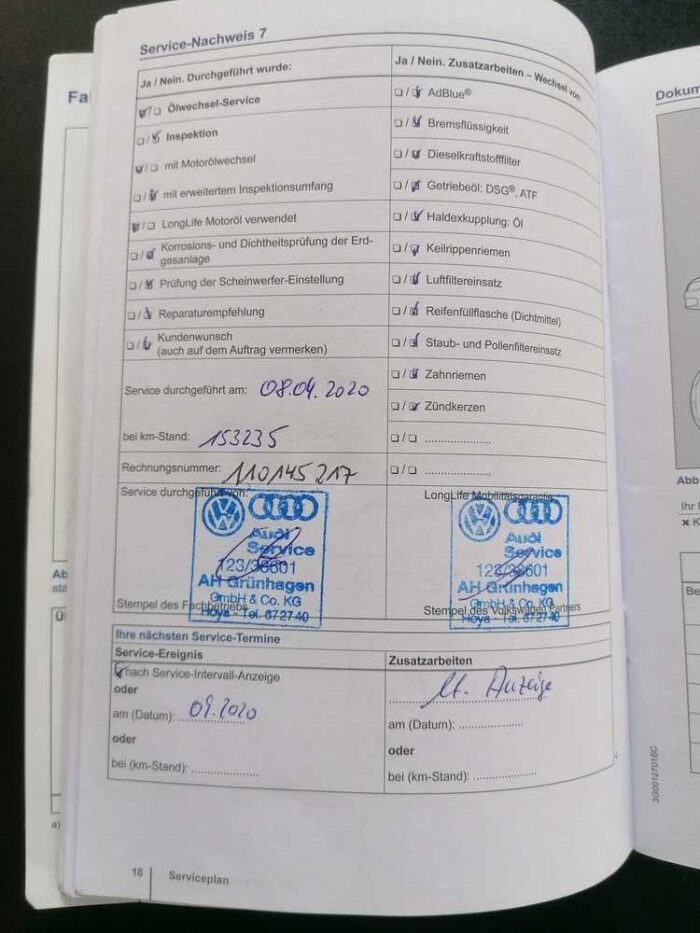 Service-Nachweis 7
Ja / Nein. Durchgeführt wurde:
Ölwechsel-Service
Inspektion
mit Motorölwechsel
mit erweitertem Inspektionsumfang
LongLife Motoröl verwendet
Korrosions- und Dichtheitsprüfung der Erd-
gasanlage
Prüfung der Scheinwerfer-Einstellung
Reparaturempfehlung
Kundenwunsch
(auch auf dem Auftrag vermerken)
Service durchgeführt am: 08.04.2020
bei km-Stand: 153235
Rechnungsnummer: 110145217
Ja / Nein. Zusatzarbeiten – Wechsel von:
AdBlue®
Bremsflüssigkeit
Dieselkraftstofffilter
Getriebeöl: DSG®, ATF
Haldexkupplung: Öl
Keilrippenriemen
Luftfiltereinsatz
Reifenfüllflasche (Dichtmittel)
Staub- und Pollenfiltereinsatz
Zahnriemen
Zündkerzen
Service durchgeführt von:
Audi
Service
123/38601
AH Grünhagen
GmbH & Co. KG
Hoya - Tel. 672740
Stempel des Fachbetriebs
LongLife Mobilitätsgarantie
Audi
Service
123/38601
AH Grünhagen
GmbH & Co. KG
Hoya - Tel. 672740
Stempel des Volkswagen Partners
Ihre nächsten Service-Termine
Service-Ereignis
nach Service-Intervall-Anzeige
oder
am (Datum): 09.2020
oder
bei (km-Stand):
Zusatzarbeiten
lt. Anzeige
am (Datum):
oder
bei (km-Stand):
18 Serviceplan
a)
Dokum
Abb
Ihr
Be
3G0012701BC